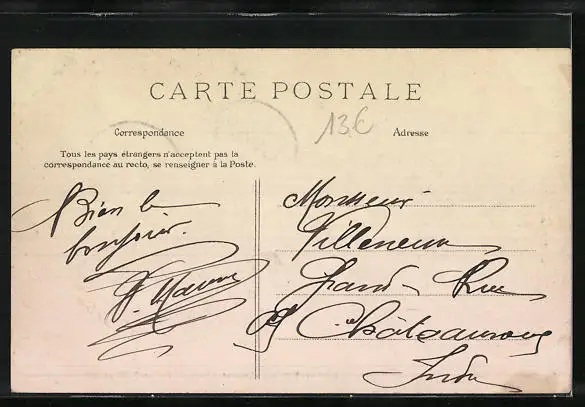 CARTE POSTALE
13€
Correspondance
Adresse
Tous les pays étrangers n'acceptent pas la
correspondance au recto, se renseigner à la Poste.
Bien le
bonjour.
Monsieur
Villeneuve
Grand Rue
Châteauroux
Indre